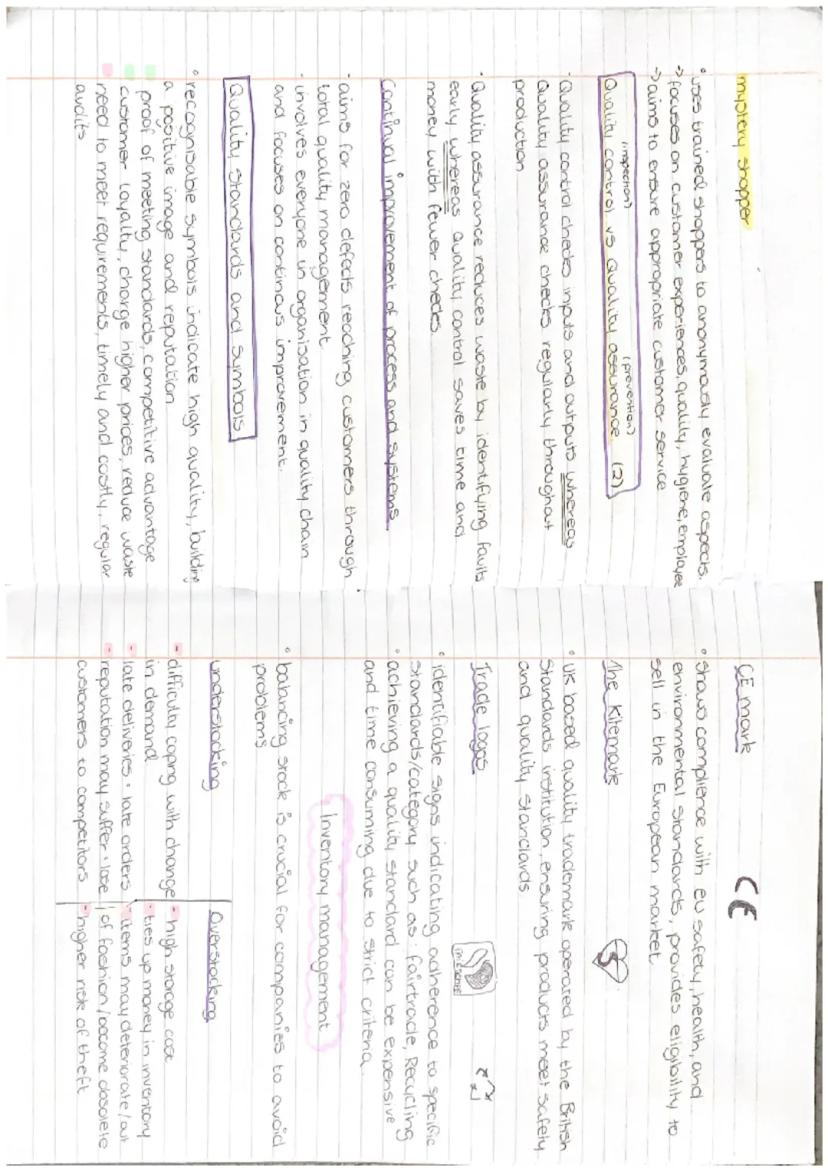 mystery shopper
° uses trained shoppers to anonymously evaluate aspects.
→ focuses on customer experiences, quality, hygiene, employee
→ aims to ensure appropriate customer service
(inspection) (prevention)
Quality control vs Quality assurance (2)
° Quality control checks inputs and outputs whereas
Quality assurance checks regularly throughout
production
· Quality assurance reduces waste by identifying faults
early whereas Quality control saves time and
money with fewer checks
Continual improvement of process and systems
· aims for zero defects reaching customers through
total quality management
· involves everyone in organisation in quality chain
and focuses on continous improvement.
Quality standards and symbols
° recognisable symbols indicate high quality, building
a positive image and reputation
proof of meeting standards, competitive advantage
customer loyalty, charge higher prices, reduce waste
need to meet requirements, timely and costly, regular
audits
CE mark CE
° shows complience with eu safety, health, and
environmental standards, provides eligibility to
sell in the European market
The kitemark
° UK based quality trademark operated by the British
Standards institution, ensuring products meet safety
and quality standards
Trade logos
° identifiable signs indicating adherence to specific
standards/category such as: fairtrade, Recycling
° achieving a quality standard can be expensive
and time consuming due to strict criteria.
Inventory management
° balancing stock is crucial for companies to avoid
problems
understocking
- difficulty coping with change
in demand
- late deliveries · late orders
- reputation may suffer · lose
customers to competitors
Overstocking
- high storage cost
- ties up money in inventory
- items may deteriorate/out
of fashion/become obsolete
- higher risk of theft